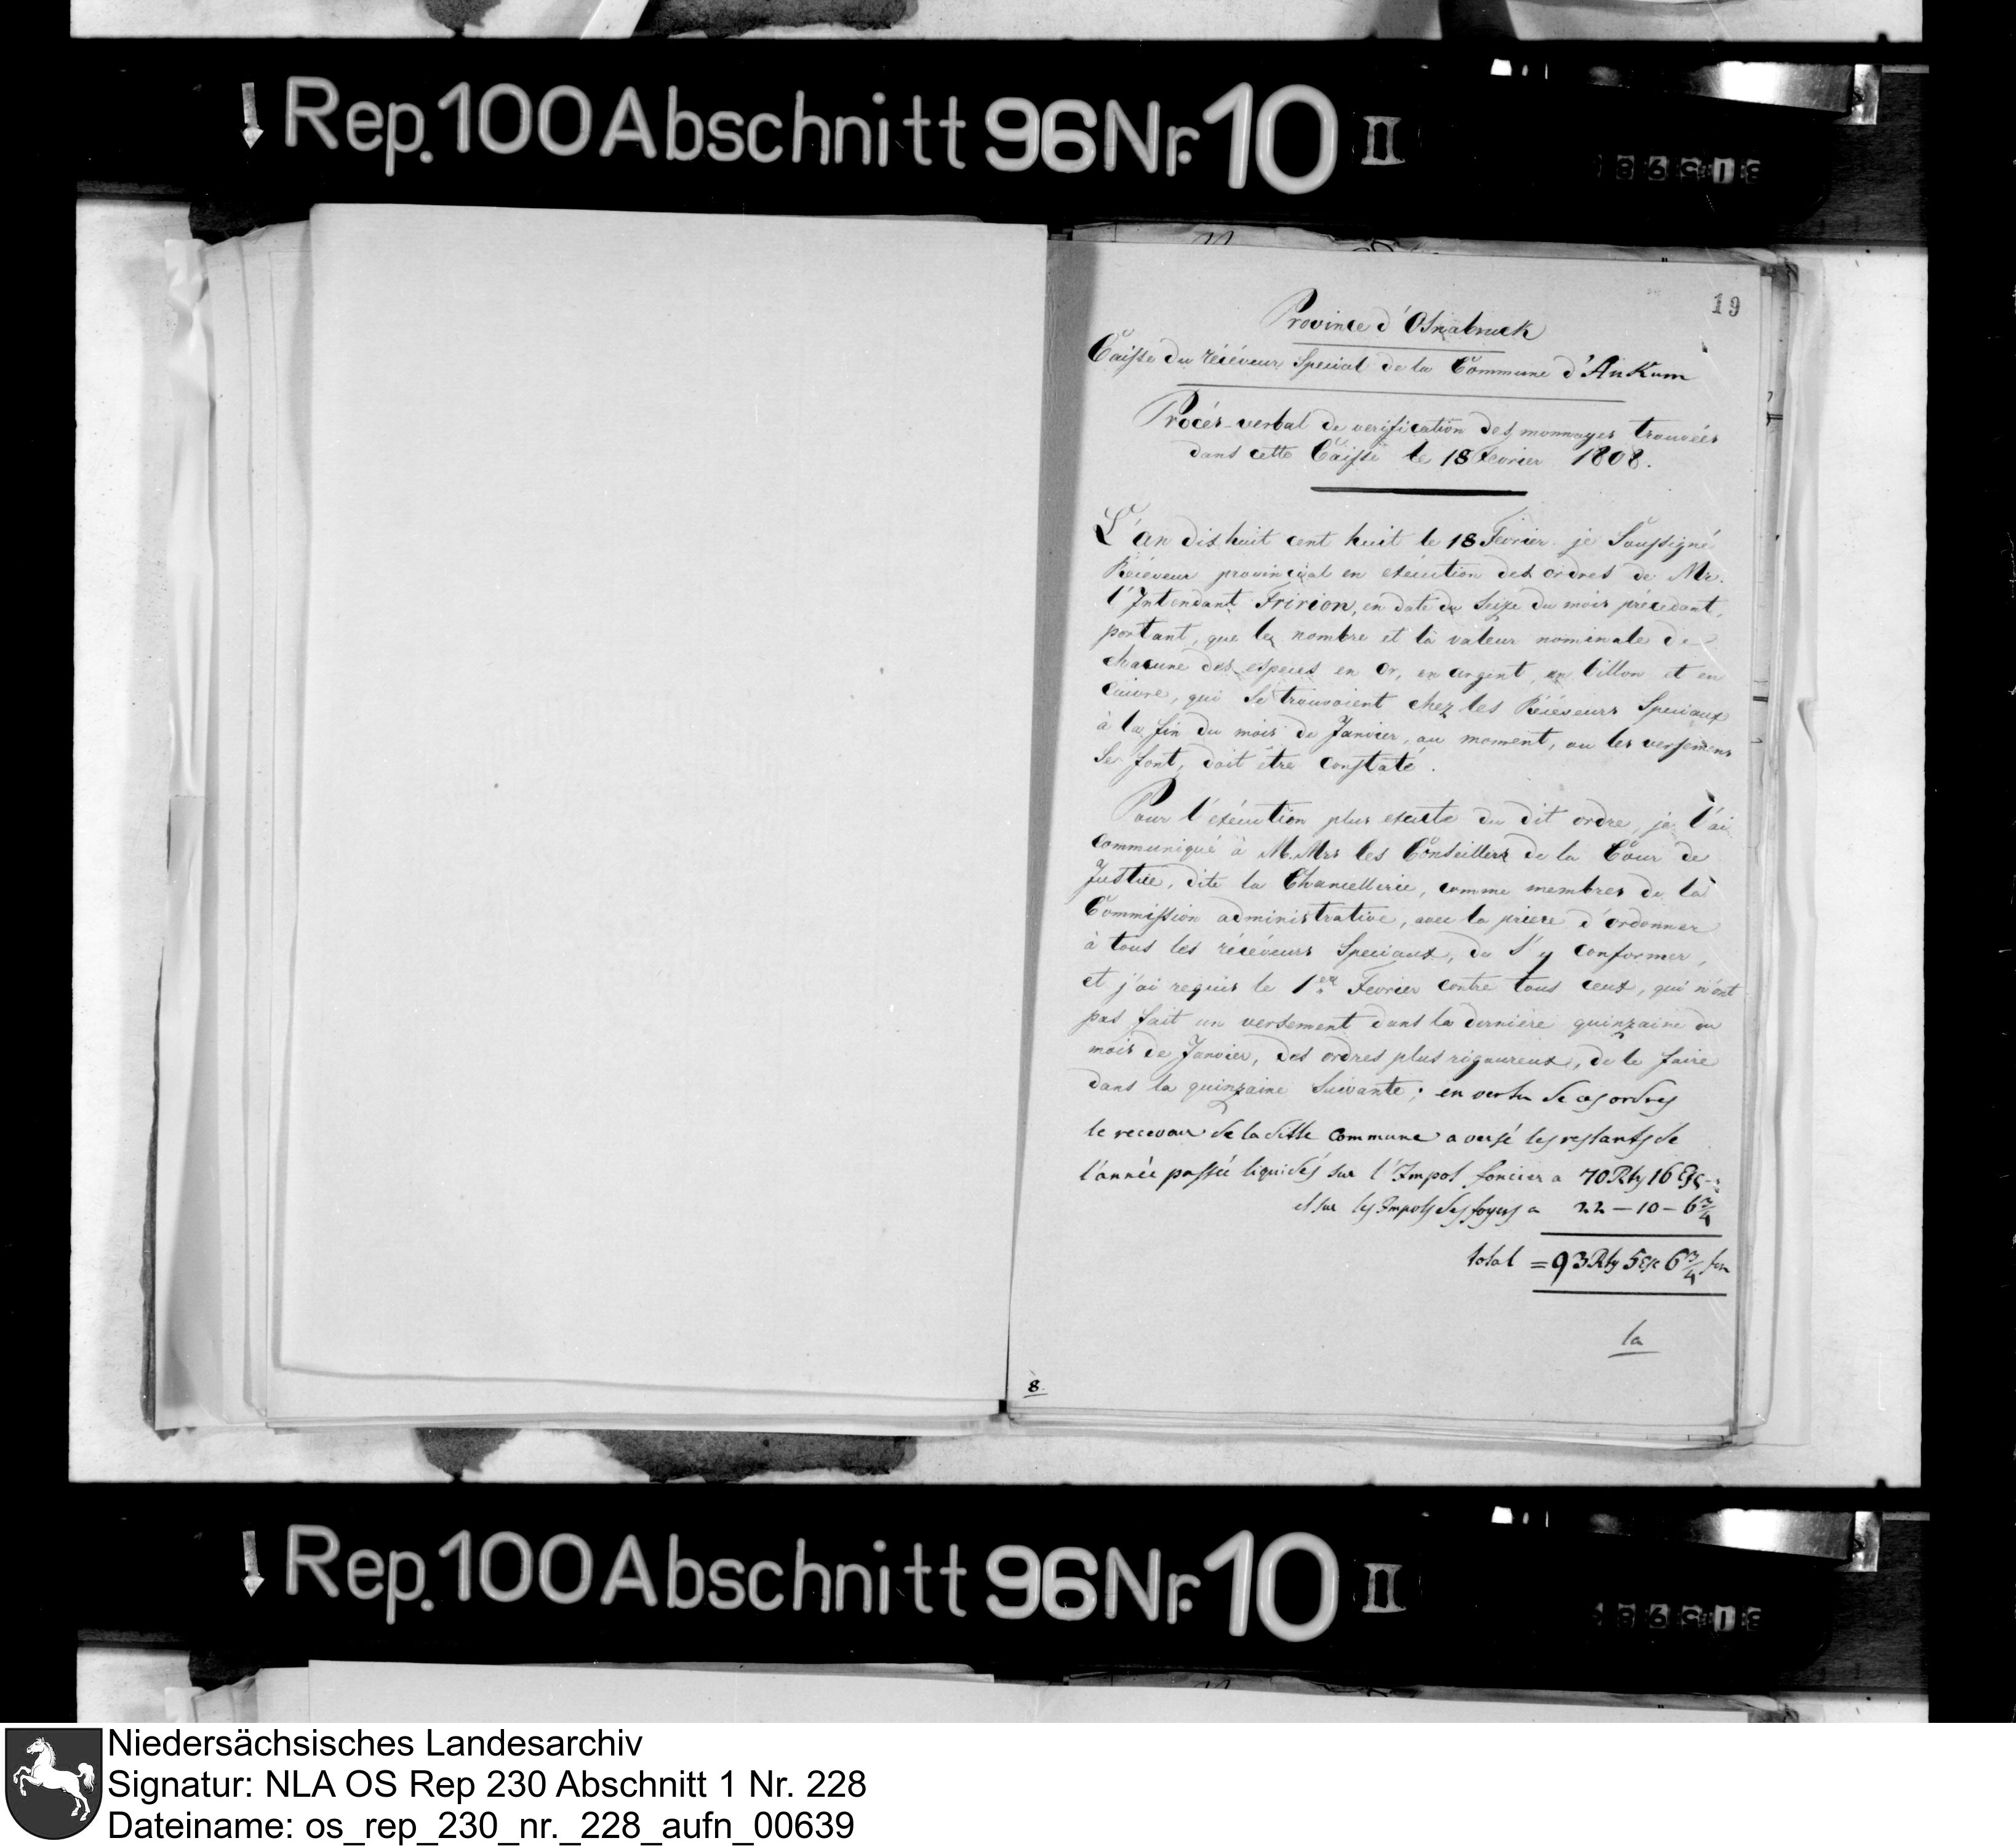 Rep. 100 Abschnitt 96 Nr. 10 II
19
Province d'Osnabruck
Caisse du réceveur Special de la Commune d'Ankum
Procès-verbal de verification des monnayes trouvées
dans cette Caisse le 18 Fevrier 1808.
L'an dixhuit cent huit le 18 Fevrier je Soussigné
Réceveur provincial en exécution des ordres de Mr.
l'Intendant Fririon, en date du Seize du mois précedant,
portant, que le nombre et la valeur nominale de
chacune des especes en or, en argent, en billon et en
Cuivre, qui Se trouvoient chez les Réceveurs Speciaux
à la fin du mois de Janvier, au moment, ou les versemens
Se font, doit être Constaté.
Pour l'exécution plus exacte du dit ordre, je l'ai
Communiqué à M.Mrs les Conseillers de la Cour de
Justice, dite la Chancellerie, comme membres de la
Commission administrative, avec la priere d'ordonner
à tous les réceveurs Speciaux, de S'y conformer,
et j'ai requis le 1er Fevrier contre tous ceux, qui n'ont
pas fait un versement dans la derniere quinzaine du
mois de Janvier, des ordres plus rigoureux, de le faire
dans la quinzaine Suivante; en vertu de ces ordres
le receveur de la ditte Commune a versé les restants de
l'année passée liquidés sur l'Impot foncier a 70 Rth 16
et sur les Impots des foyers a 22 – 10 – 6 3/4
total = 93 Rth 5 6 3/4
la
8
Rep. 100 Abschnitt 96 Nr. 10 II
Niedersächsisches Landesarchiv
Signatur: NLA OS Rep 230 Abschnitt 1 Nr. 228
Dateiname: os_rep_230_nr._228_aufn_00639